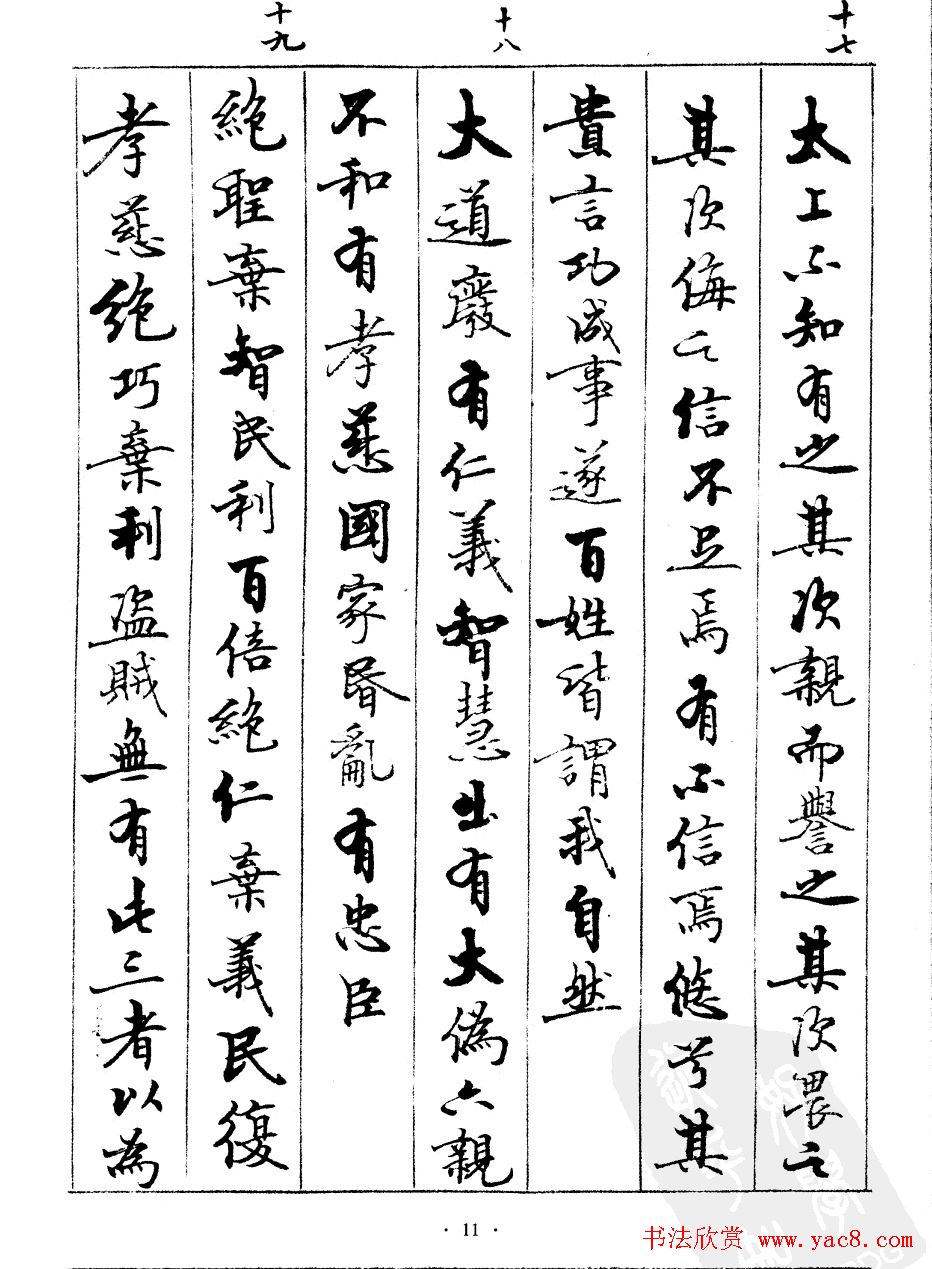 十七
十八
十九
太上不知有之其次親而譽之其次畏之
其次侮之信不足焉有不信焉悠兮其
貴言功成事遂百姓皆謂我自然
大道廢有仁義智慧出有大偽六親
不和有孝慈國家昏亂有忠臣
絕聖棄智民利百倍絕仁棄義民復
孝慈絕巧棄利盜賊無有此三者以為
· 11 ·
书法欣赏 www.yac8.com